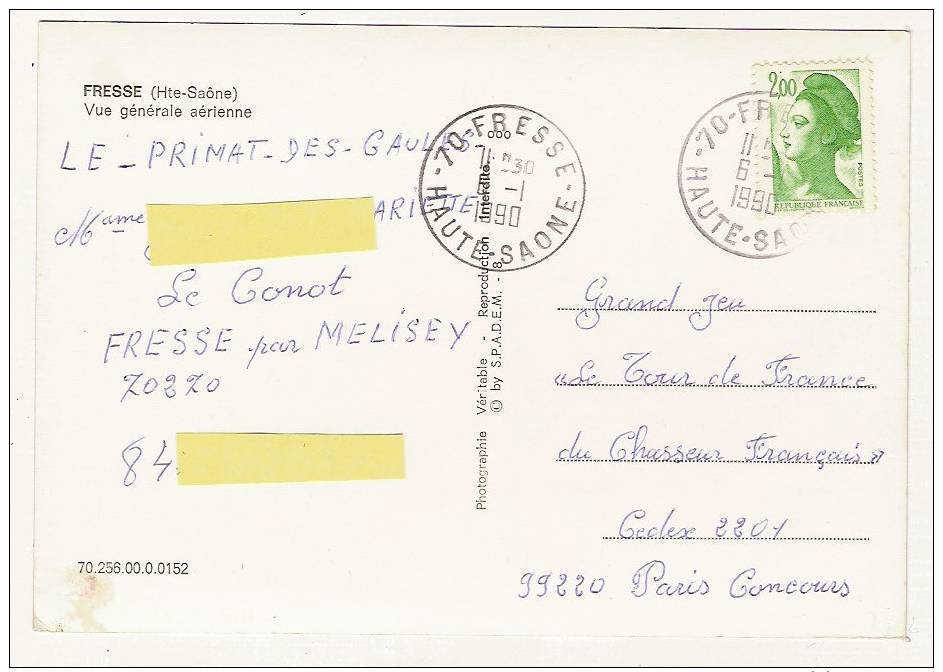 FRESSE (Hte-Saône)
Vue générale aérienne
LE - PRIMAT - DES - GAULES
Mame ARIETTE
Le Conot
FRESSE par MELISEY
70270
84
70.256.00.0.0152
Photographie Véritable - Reproduction Interdite
© by S.P.A.D.E.M. - 8
70-FRESSE
11H30
6-1
1990
HAUTE-SAONE
70-FR
11H
6-
1990
HAUTE-SAO
2,00
POSTES
REPUBLIQUE FRANÇAISE
Grand Jeu
«Le Tour de France
du Chasseur Français»
Cedex 2201
99220 Paris Concours